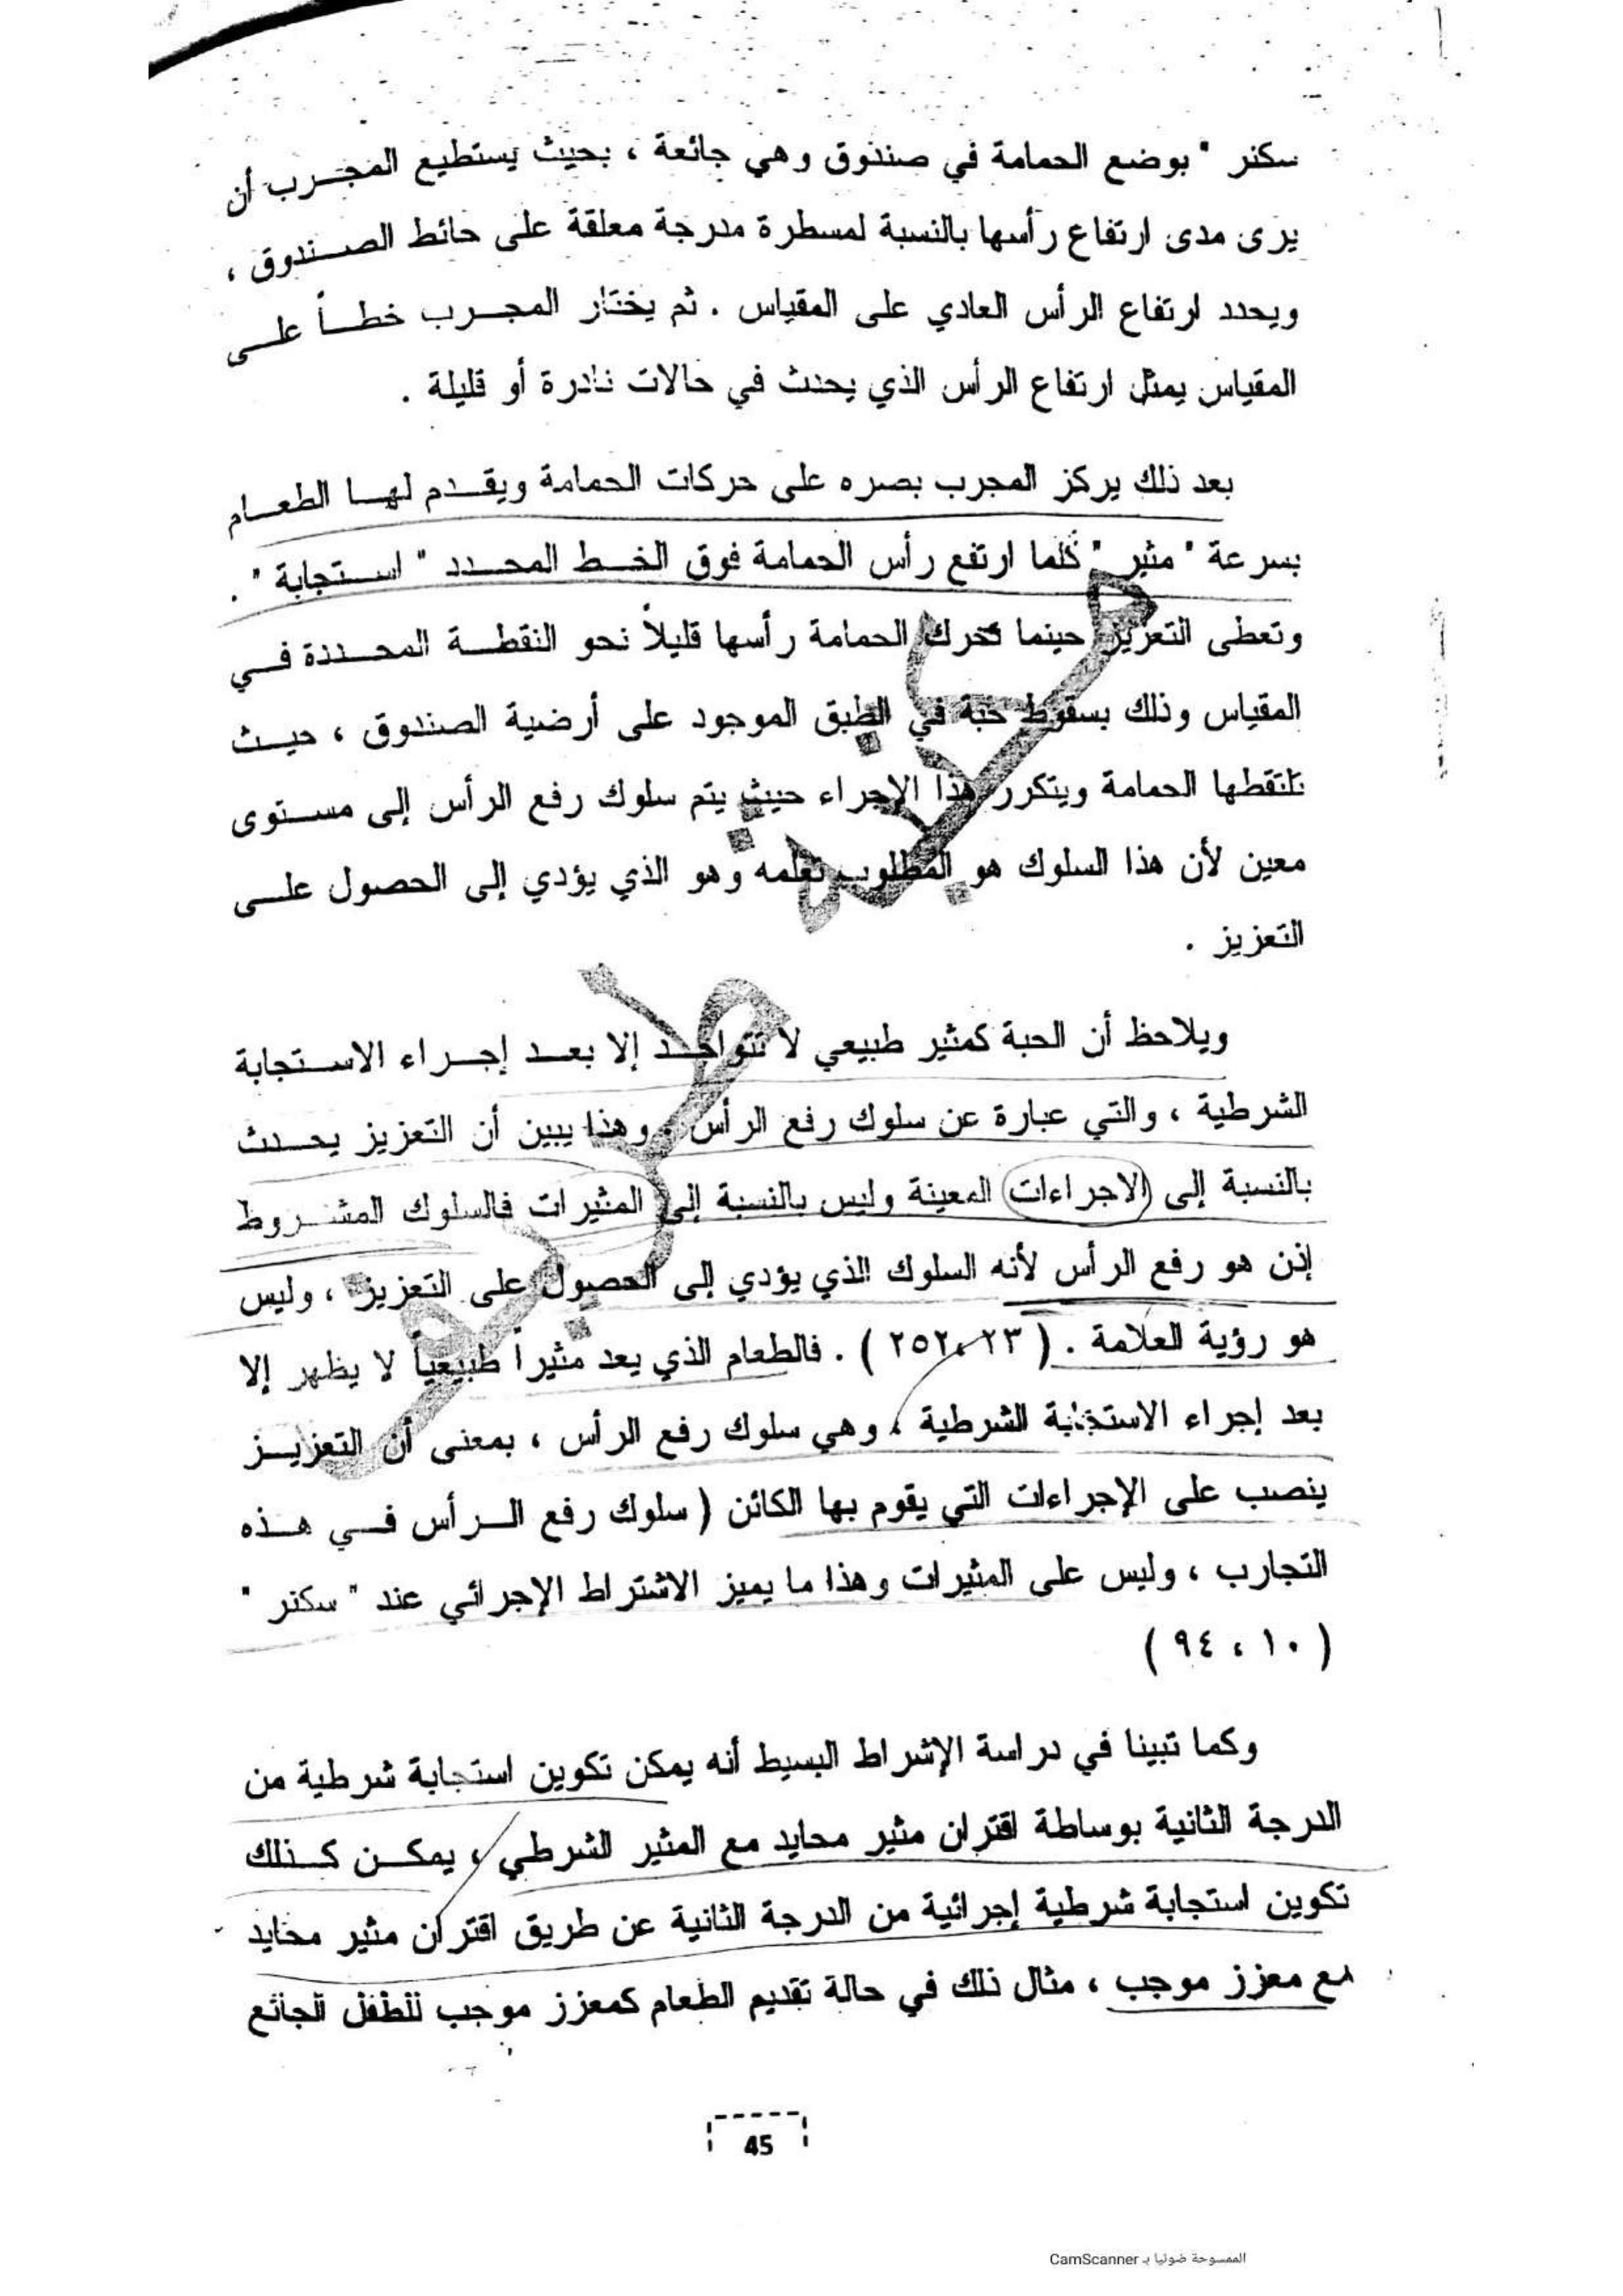 سكنر " بوضع الحمامة في صندوق وهي جائعة ، بحيث يستطيع المجرب أن
يرى مدى ارتفاع رأسها بالنسبة لمسطرة مدرجة معلقة على حائط الصندوق ،
ويحدد ارتفاع الرأس العادي على المقياس . ثم يختار المجرب خطاً على
المقياس يمثل ارتفاع الرأس الذي يحدث في حالات نادرة أو قليلة .
بعد ذلك يركز المجرب بصره على حركات الحمامة ويقدم لها الطعام
بسرعة " مثير " كلما ارتفع رأس الحمامة فوق الخط المحدد " استجابة " .
وتعطى التعزيز حينما تحرك الحمامة رأسها قليلاً نحو النقطة المحددة في
المقياس وذلك بسقوط حبة في الطبق الموجود على أرضية الصندوق ، حيث
تلتقطها الحمامة ويتكرر هذا الإجراء حيث يتم سلوك رفع الرأس إلى مستوى
معين لأن هذا السلوك هو المطلوب تعلمه وهو الذي يؤدي إلى الحصول على
التعزيز .
ويلاحظ أن الحبة كمثير طبيعي لا تتواجد إلا بعد إجراء الاستجابة
الشرطية ، والتي عبارة عن سلوك رفع الرأس . وهذا يبين أن التعزيز يحدث
بالنسبة إلى الاجراءات المعينة وليس بالنسبة إلى المثيرات فالسلوك المشروط
إذن هو رفع الرأس لأنه السلوك الذي يؤدي إلى الحصول على التعزيز ، وليس
هو رؤية العلامة . ( ٢٣ ، ٢٥٢ ) . فالطعام الذي يعد مثيراً طبيعياً لا يظهر إلا
بعد إجراء الاستجابة الشرطية ، وهي سلوك رفع الرأس ، بمعنى أن التعزيز
ينصب على الإجراءات التي يقوم بها الكائن ( سلوك رفع الرأس في هذه
التجارب ، وليس على المثيرات وهذا ما يميز الاشتراط الإجرائي عند " سكنر "
( ١٠ ، ٩٤ )
وكما تبينا في دراسة الإشراط البسيط أنه يمكن تكوين استجابة شرطية من
الدرجة الثانية بوساطة اقتران مثير محايد مع المثير الشرطي ، يمكن كذلك
تكوين استجابة شرطية إجرائية من الدرجة الثانية عن طريق اقتران مثير محايد
مع معزز موجب ، مثال ذلك في حالة تقديم الطعام كمعزز موجب للطفل الجائع
45
الممسوحة ضوئيا بـ CamScanner